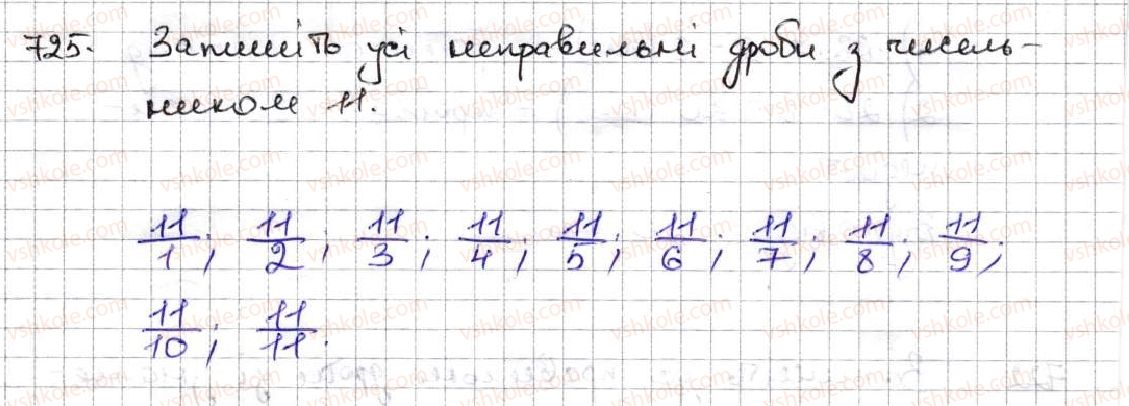 725. Запишіть усі неправильні дроби з чисель-
ником 11.
11/1; 11/2; 11/3; 11/4; 11/5; 11/6; 11/7; 11/8; 11/9;
11/10; 11/11.